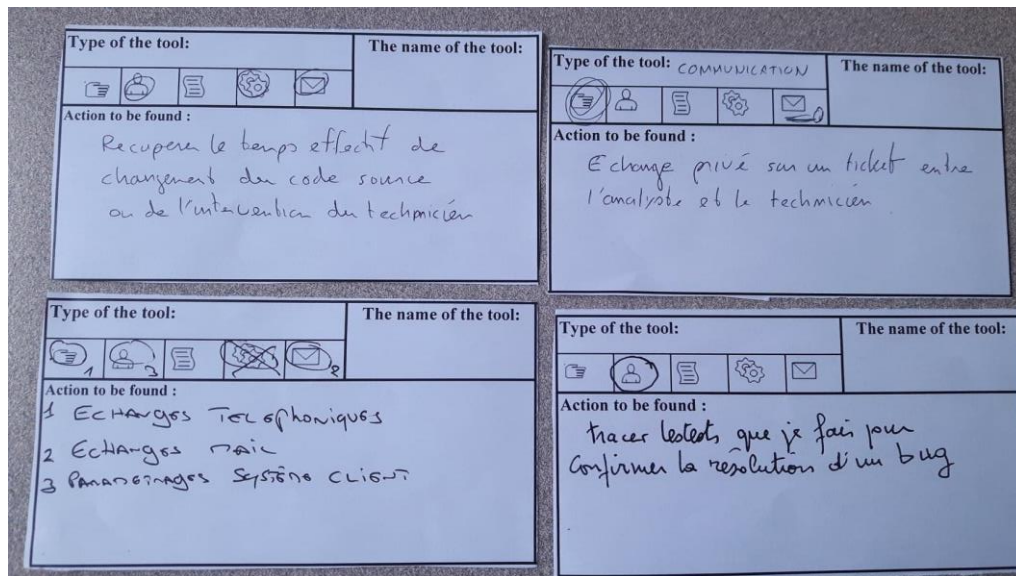 Type of the tool:
The name of the tool:
Action to be found :
Recuperer le temps effectif de
changement du code source
ou de l'intervention du technicien
Type of the tool: COMMUNICATION
The name of the tool:
Action to be found :
Echange privé sur un ticket entre
l'analyste et le technicien
Type of the tool:
The name of the tool:
1 3 2
Action to be found :
1 ECHANGES TELEPHONIQUES
2 ECHANGES MAIL
3 PARAMETRAGES SYSTÈME CLIENT
Type of the tool:
The name of the tool:
Action to be found :
tracer les tests que je fais pour
confirmer la résolution d'un bug